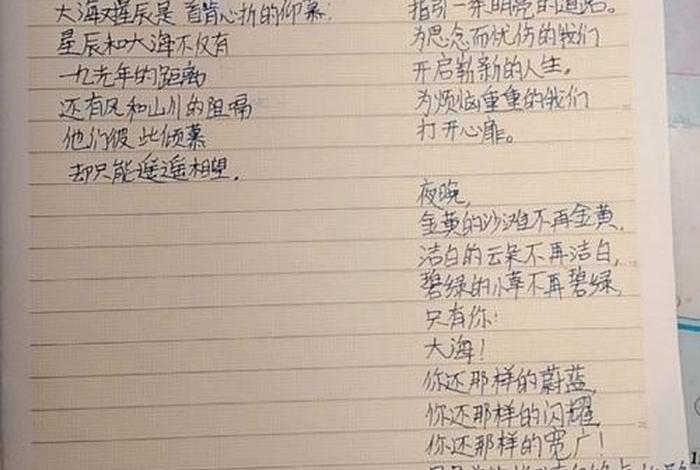 大海对星辰是首肯心折的仰慕;
星辰和大海不仅有
一光年的距离
还有风和山川的阻嗝
他们彼此倾慕
却只能遥遥相望.
指引一条明亮的道路。
为思念而忧伤的我们
开启崭新的人生。
为烦恼重重的我们
打开心扉。
夜晚,
金黄的沙滩不再金黄,
洁白的云朵不再洁白,
碧绿的小草不再碧绿,
只有你:
大海!
你还那样的蔚蓝,
你还那样的闪耀,
你还那样的宽广!